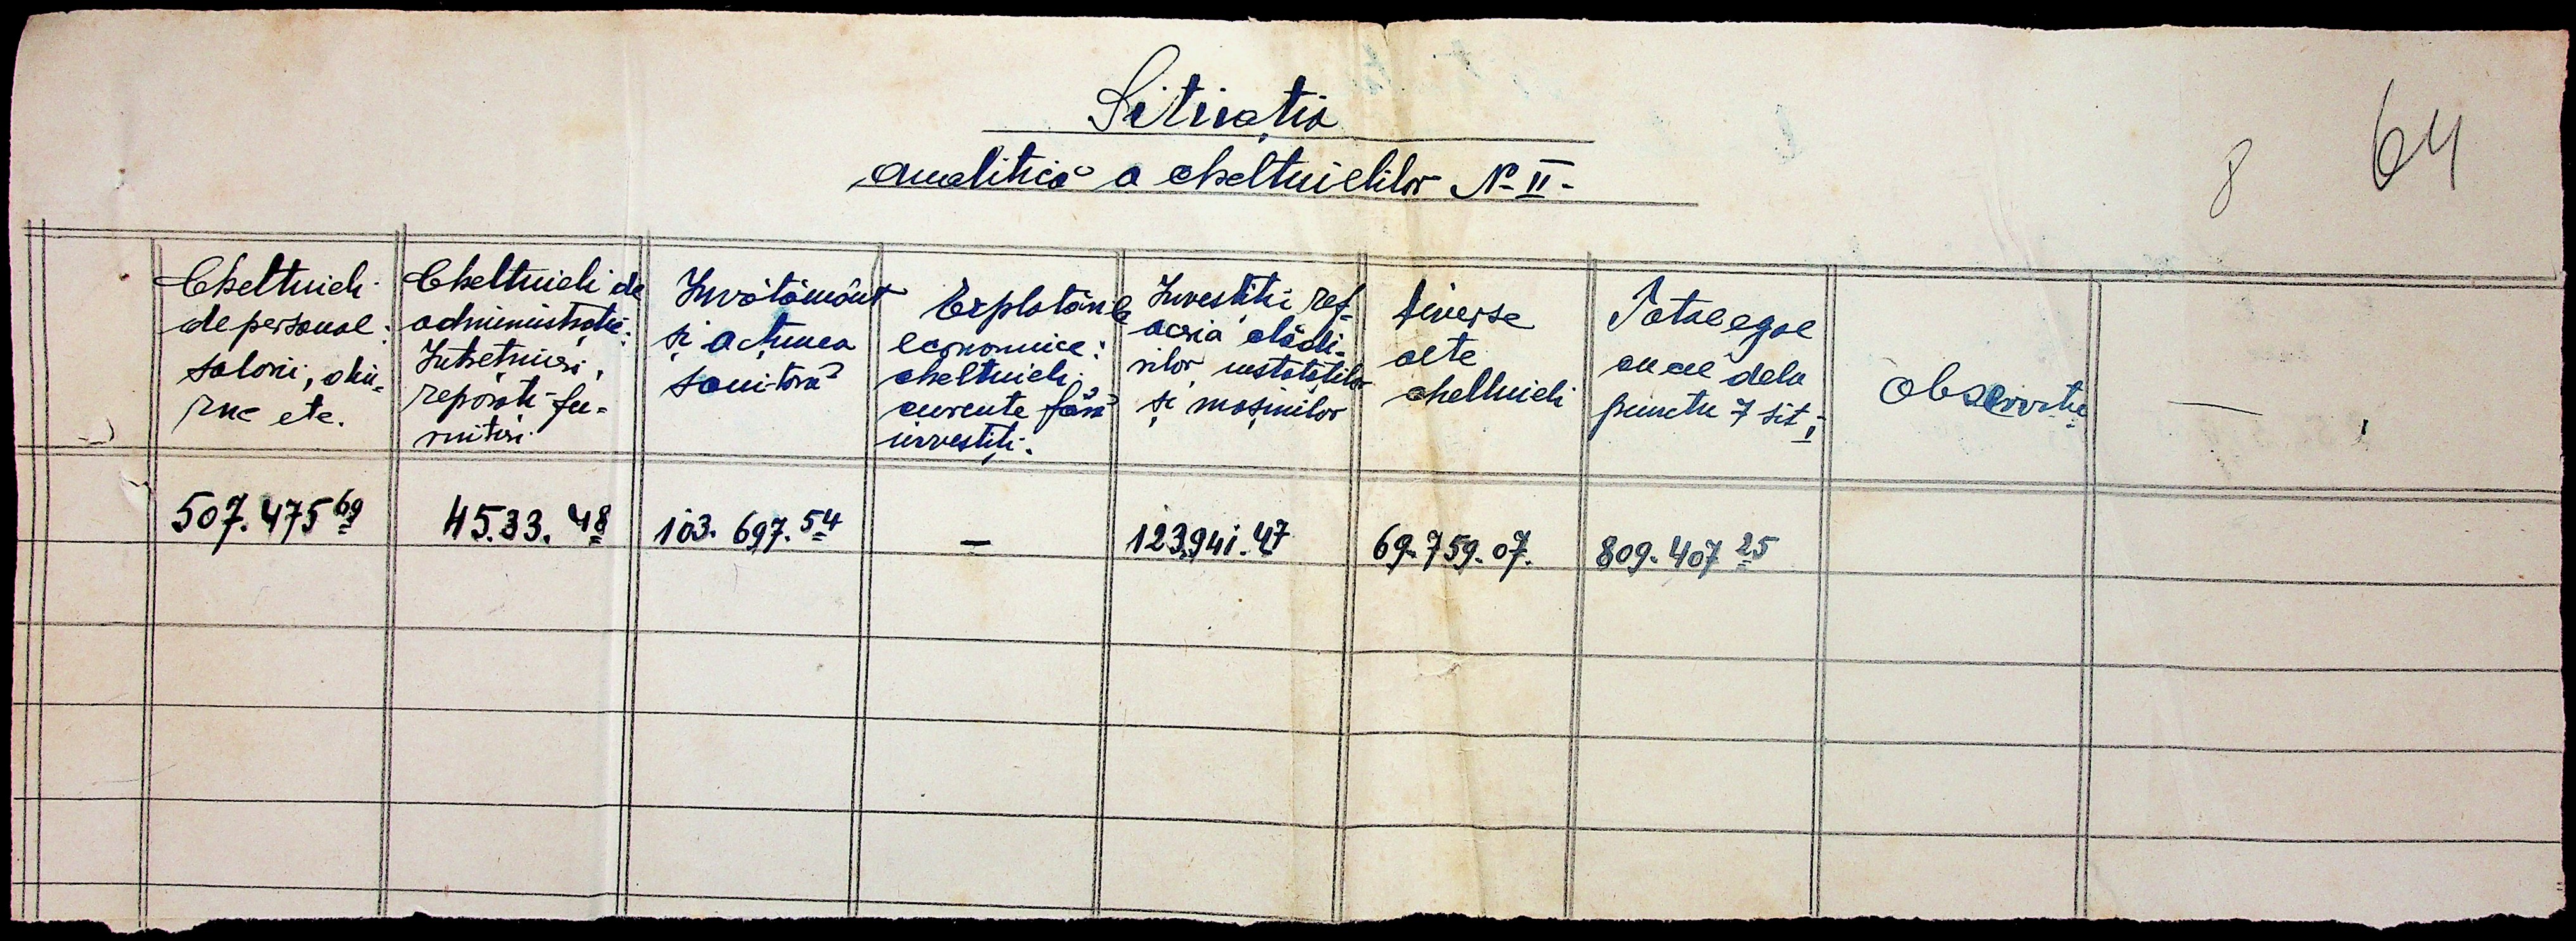 Situația
analitică a cheltuielilor No II-
8
64
Cheltuieli
de personal:
salarii, chi-
rae etc.
Cheltuieli de
administrație:
Intreținieri,
reparati-fu-
rnituri
Invătământ
și acțiunea
sanitară
Explotările
economice:
cheltuieli
curente fără
investiții.
Investitii ref-
acerea clădi-
rilor instalatiilor
și mașinilor
diverse
alte
cheltuieli
Total egal
cu cel dela
punctu 7 sit I
Observatie
—
507.475 69
45.33.48
103.697.54
—
123.941.47
69.759.07.
809.407 25